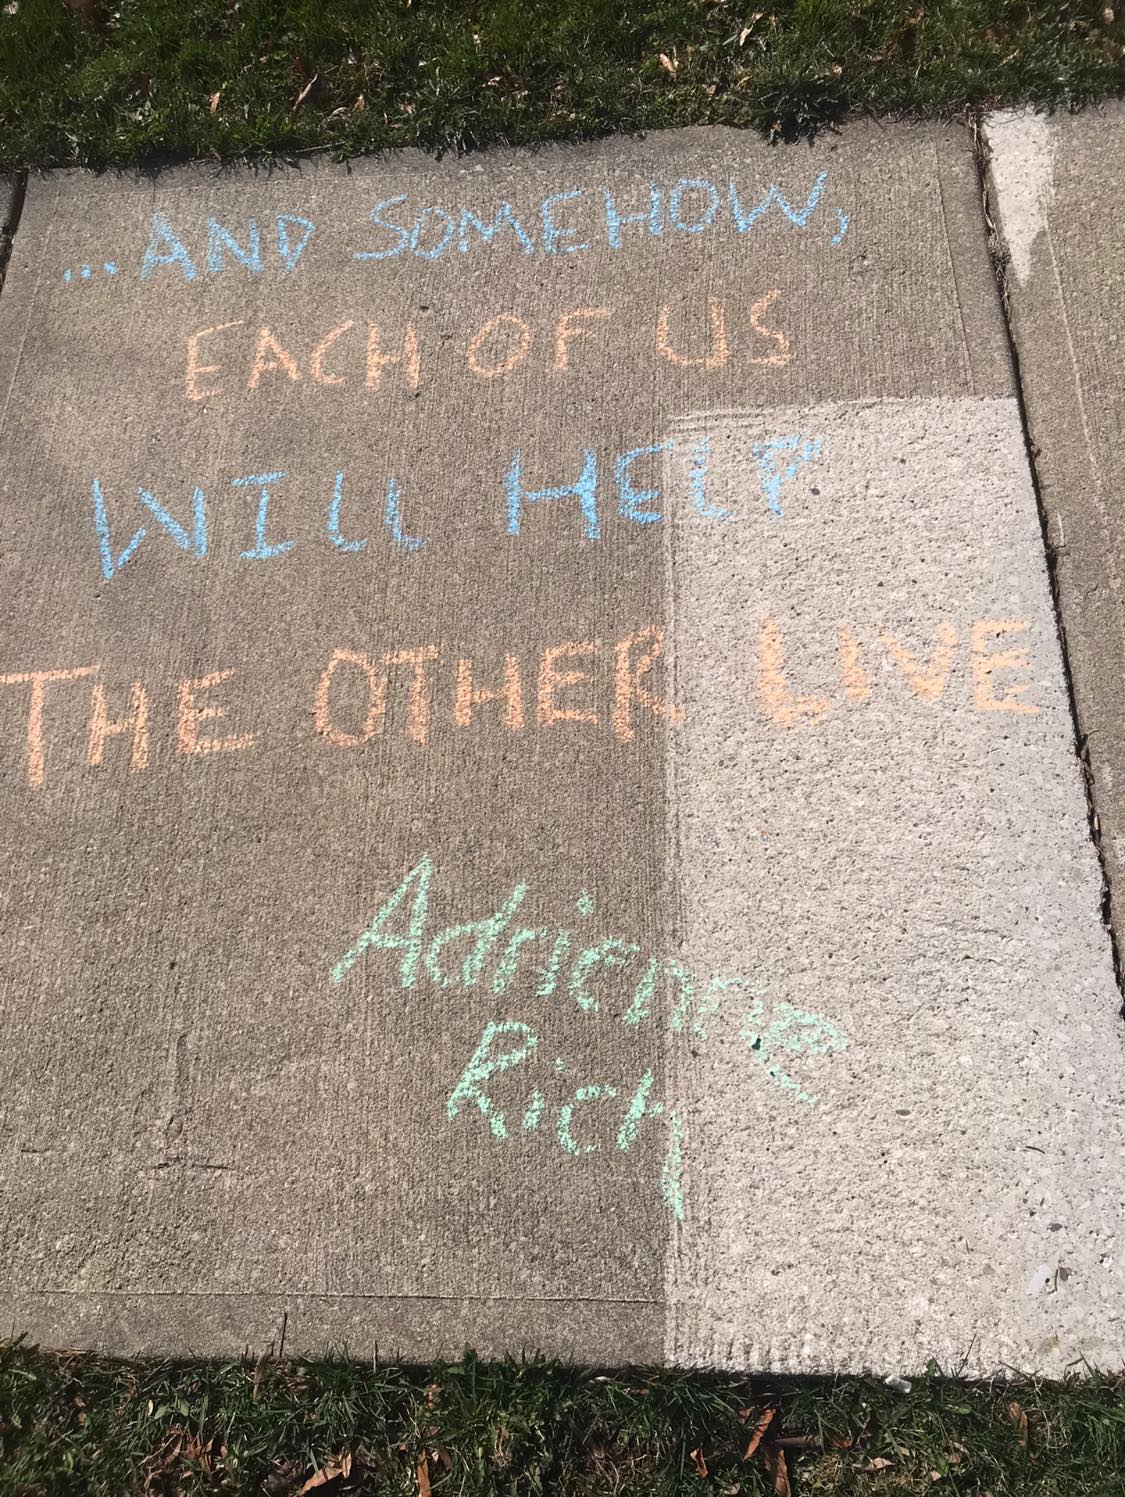 ...AND SOMEHOW,
EACH OF US
WILL HELP
THE OTHER LIVE
Adrienne
Rich